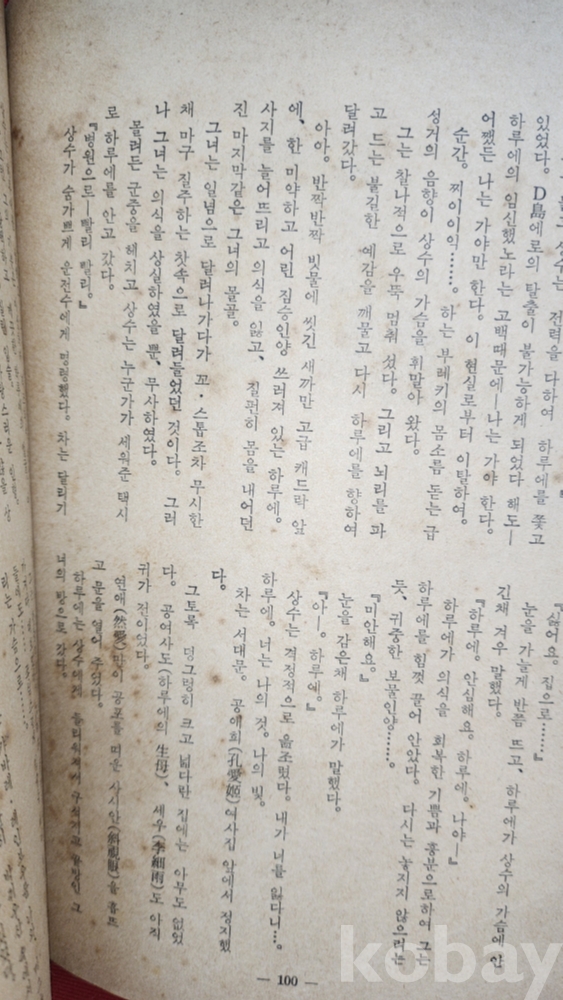 있었다。 D島에로의 탈출이 불가능하게 되었다 해도—
하루에의 임신했노라는 고백때문에—나는 가야 한다。
어쨌든 나는 가야만 한다。 이 현실로부터 이탈하여。
순간、 찌이이익……。 하는 부레키의 몸소름 돋는 급
성거의 음향이 상수의 가슴을 휘말아 왔다。
그는 찰나적으로 우뚝 멈춰 섰다。 그리고 뇌리를 파
고 드는 불길한 예감을 깨물고 다시 하루에를 향하여
달려갔다。
아아。 반짝반짝 빗물에 씻긴 새까만 고급 캐드락 앞
에、 한 미약하고 어린 짐승인양 쓰러져 있는 하루에。
사지를 늘어뜨리고 의식을 잃고、 질펀히 몸을 내어던
진 마지막같은 그녀의 몰골。
그녀는 일념으로 달려나가다가 꼬・스톱조차 무시한
채 마구 질주하는 찻속으로 달려들었던 것이다。 그러
나 그녀는 의식을 상실하였을 뿐、 무사하였다。
몰려든 군중을 헤치고 상수는 누군가가 세워준 택시
로 하루에를 안고 갔다。
『병원으로—빨리 빨리。』
상수가 숨가쁘게 운전수에게 명령했다。 차는 달리기
『싫어요。 집으로……』
눈을 가늘게 반쯤 뜨고、 하루에가 상수의 가슴에 안
긴채 겨우 말했다。
『하루에。 안심해요。 하루에。 나야—』
하루에가 의식을 회복한 기쁨과 흥분으로하여 그는
하루에를 힘껏 끌어 안았다。 다시는 놓지지 않으려는
듯、 귀중한 보물인양……。
『미안해요。』
눈을 감은채 하루에가 말했다。
『아—。 하루에。』
상수는 격정적으로 읊조렸다。 내가 너를 잃다니…。
하루에。 너는 나의 것。 나의 빛。
차는 서대문。 공애희(孔愛姬)여사집 앞에서 정지했
다。
그토록 덩그렁히 크고 넓다란 집에는 아무도 없었
다。 공여사도(하루에의 生母)、 세우(李細雨)도 아직
귀가 전이었다。
연애(然愛)만이 공포를 먹은 사시안(斜視眼)을 흡뜨
고 문을 열어 주었다。
하루에는 상수에게
너의 방으로 갔다。
— 100 —
kobay